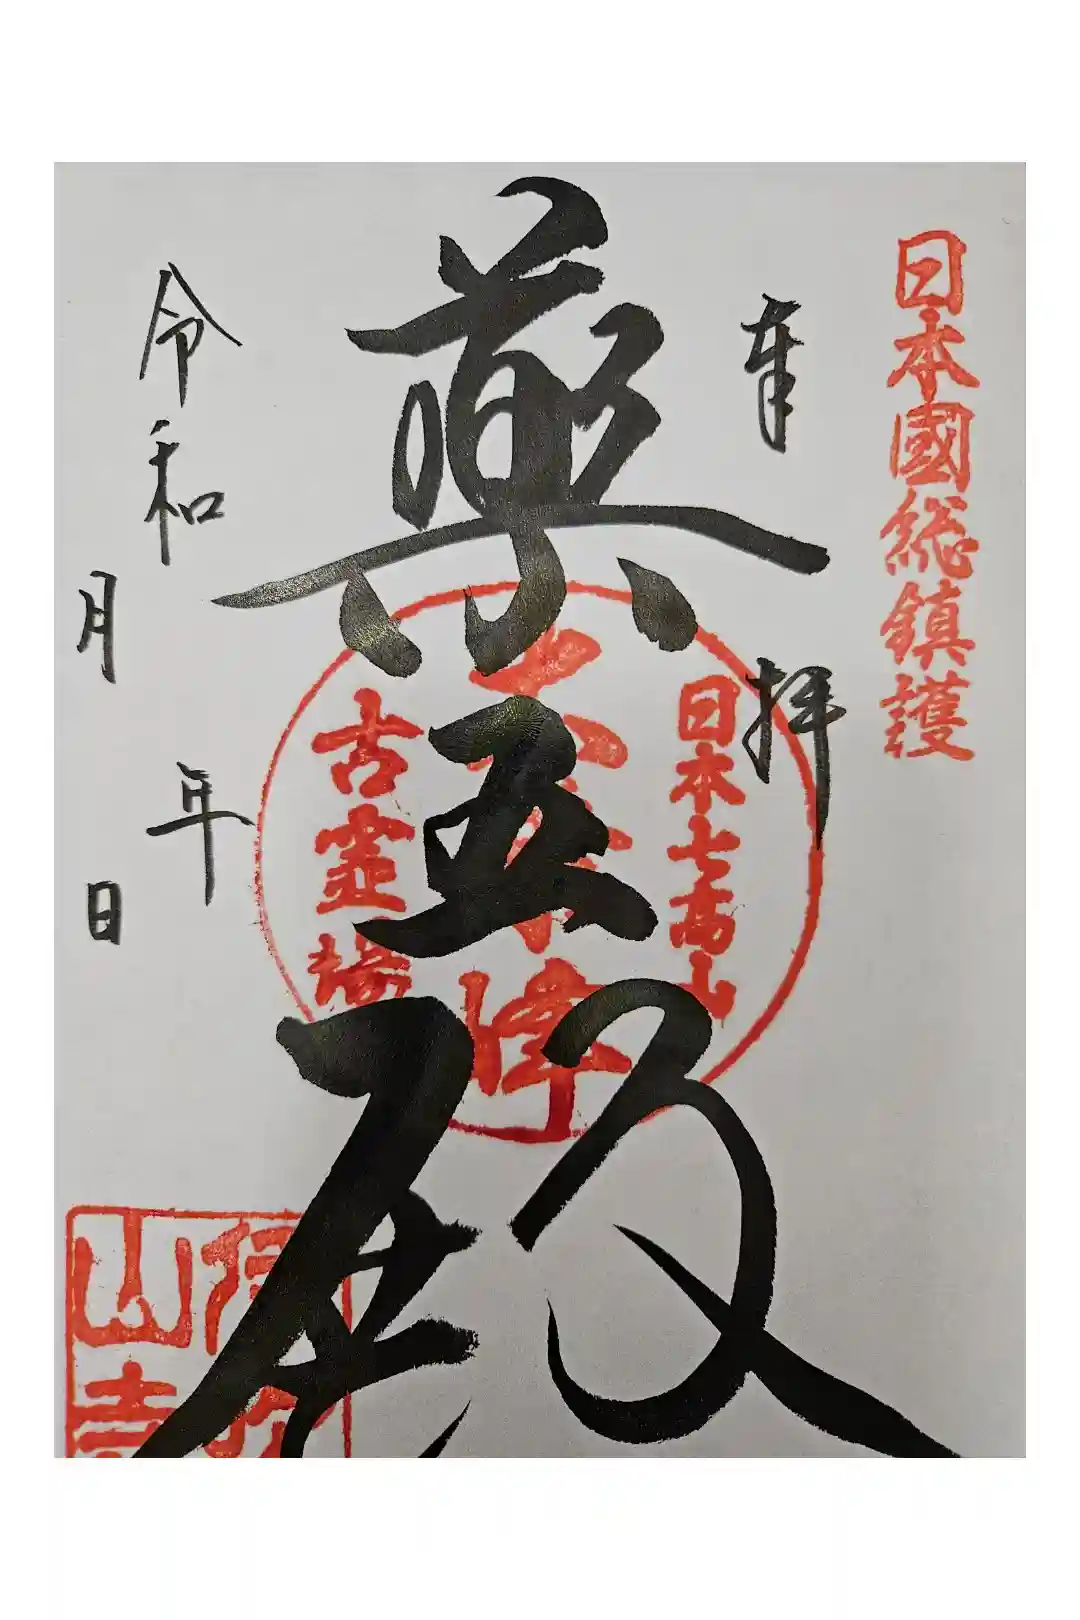 日本國総鎮護
奉拝
日本七高山
古霊場
殿
令和 年
月 日
山寺